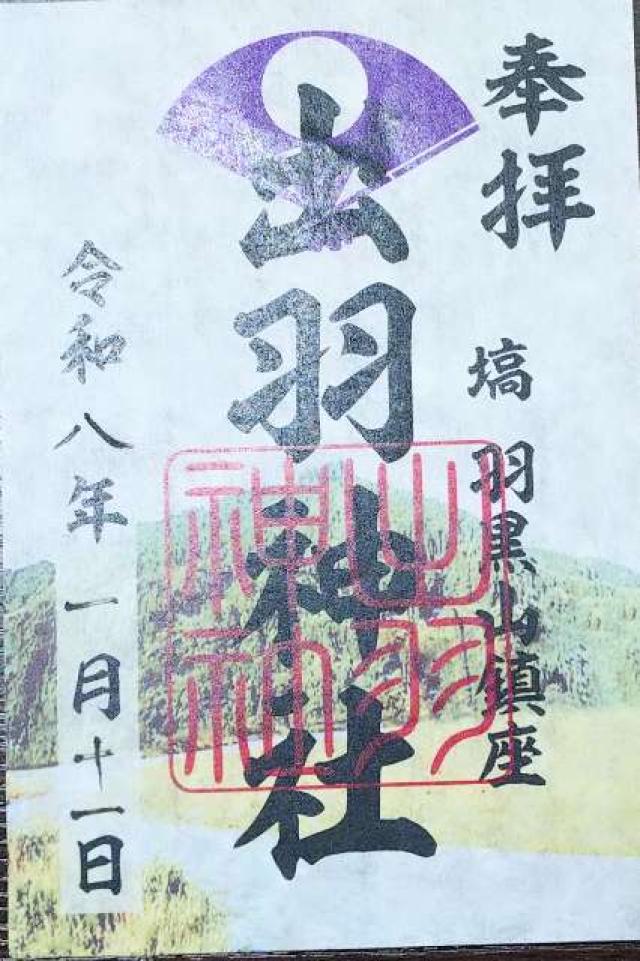 奉拝
塙 羽黒山鎮座
出羽神社
出羽神社
令和八年一月十一日